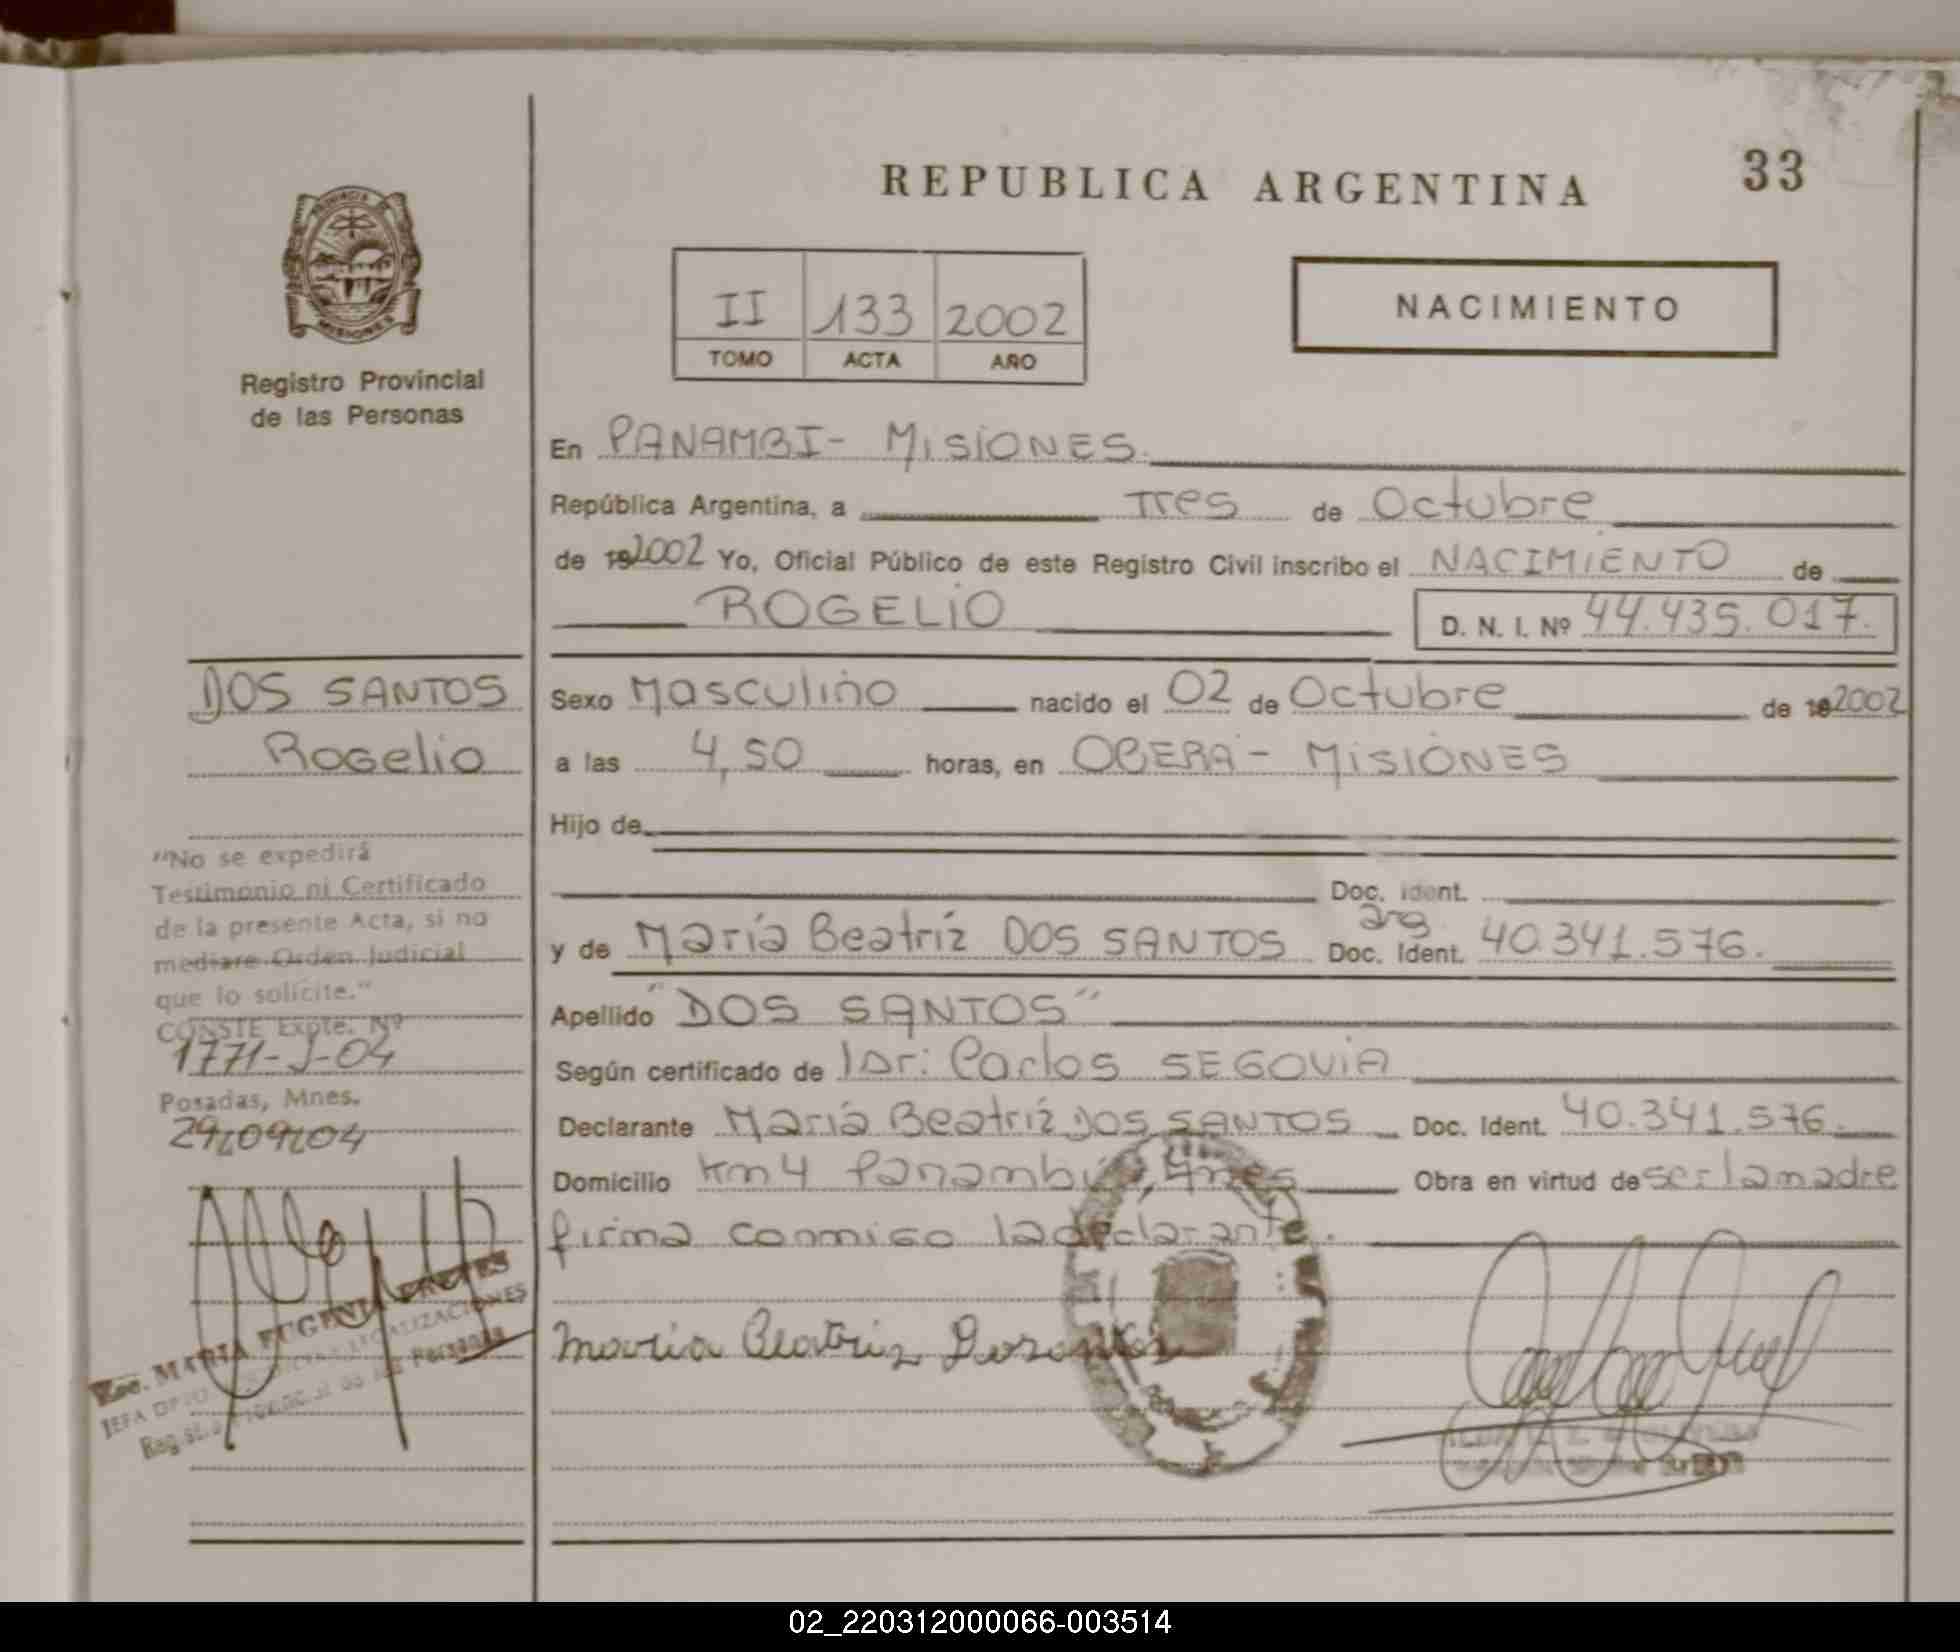 REPUBLICA ARGENTINA
33
PROVINCIA
MISIONES
Registro Provincial
de las Personas
II 133 2002
TOMO ACTA AÑO
NACIMIENTO
En PANAMBI - MISIONES.
República Argentina, a Tres de Octubre
de 192002 Yo, Oficial Público de este Registro Civil inscribo el NACIMIENTO de
ROGELIO D. N. I. Nº 44.435.017.
DOS SANTOS
Rogelio
Sexo Masculino nacido el 02 de Octubre de 192002
a las 4,50 horas, en OBERA - MISIONES
Hijo de
Doc. ident.
y de María Beatríz DOS SANTOS Doc. Ident. arg. 40.341.576.
Apellido "DOS SANTOS"
Según certificado de Dr: Carlos SEGOVIA
Declarante María Beatríz DOS SANTOS Doc. Ident. 40.341.576.
Domicilio Km 4 Panambí, Mnes Obra en virtud de ser la madre
firma conmigo la declarante.
María Beatriz
"No se expedirá
Testimonio ni Certificado
de la presente Acta, si no
mediare Orden Judicial
que lo solicite."
CONSTE Expte. Nº
1771-J-04
Posadas, Mnes.
29/09/04
MARIA EUGENIA
JEFA
Personas
02_220312000066-003514